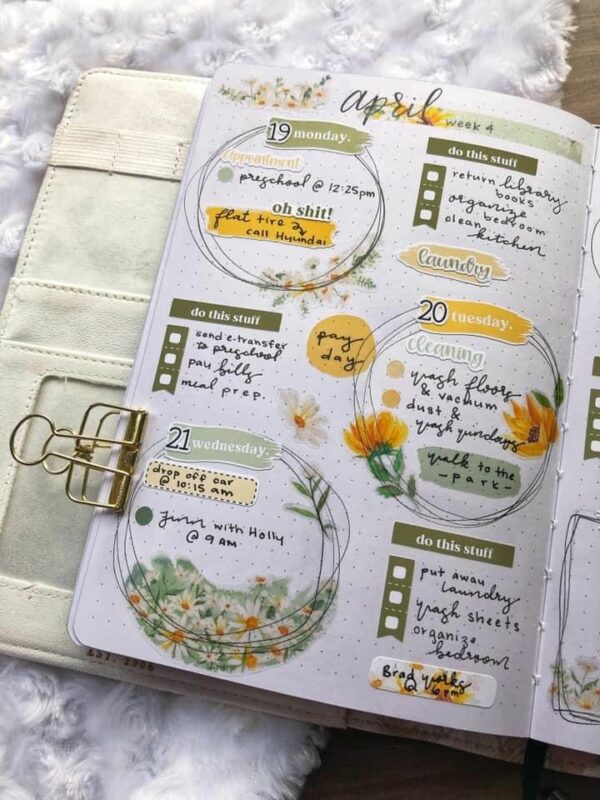 april
week 4
19 monday.
appointment
preschool @ 12:25pm
oh shit!
flat tire →
call Hyundai
do this stuff
return library
books
organize
bedroom
clean
kitchen
laundry
do this stuff
send e-transfer
to preschool
pay bills
meal prep.
pay
day
20 tuesday.
cleaning
wash floors
& vacuum
dust &
wash windows
walk to the
- park -
21 wednesday.
drop off car
@ 10:15 am
with Holly
@ 9 AM
do this stuff
put away
laundry
wash sheets
organize
bedroom
Brad works
@ 6 pm
EST.